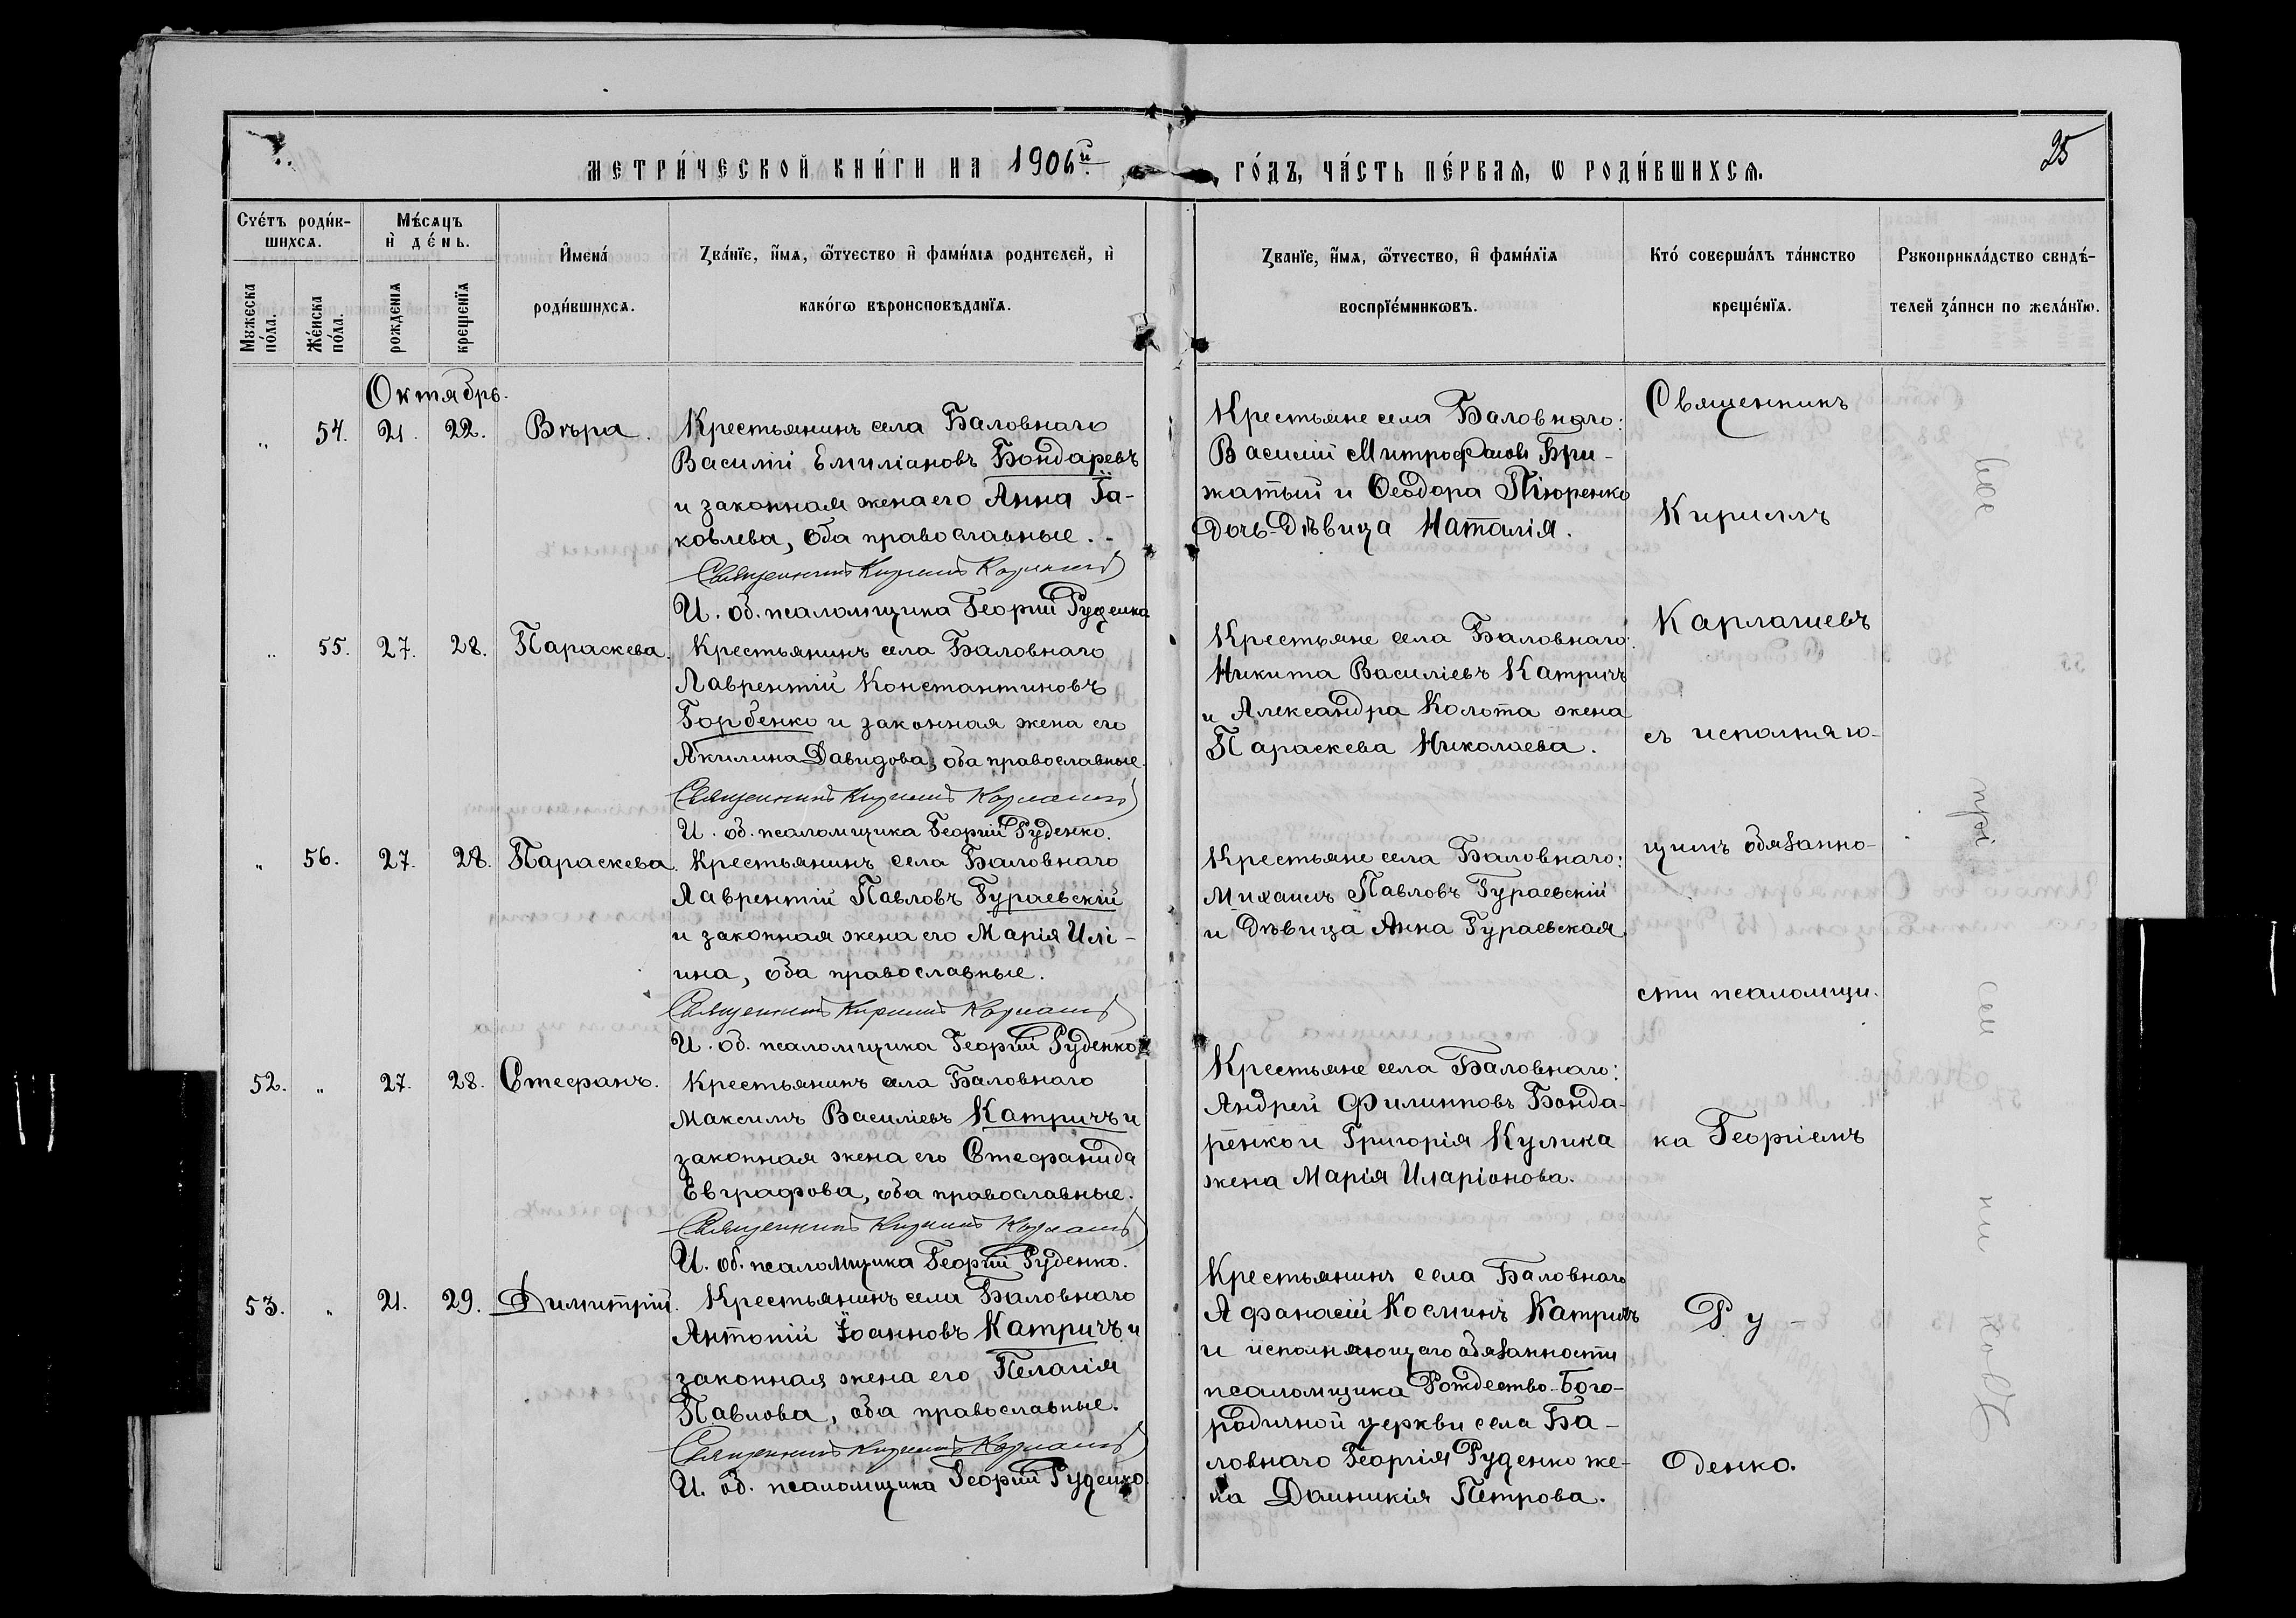 метри́ческой кни́ги на 1906й
го́дъ, ча́сть пе́рвая, ѡ роди́вшихся.
25
Сче́тъ роди́в-
шихся.
Мужеска по́ла.
Же́нска по́ла.
Мѣ́сяцъ
и҆ де́нь.
рожденія
крещенїя
И҆мена́
роди́вшихся.
Зва́нїе, и҆́мя, ѻ҆́тчество и҆ фами́лія родителей, и҆
како́гѡ вѣроисповѣданїя.
Званїе, и҆́мя, ѻ҆́тчество, и҆ фами́лїя
воспрїе́мникѡвъ.
Кто́ соверша́лъ та́инство
креще́нїя.
Рукоприкла́дство свидѣ́-
телей за́писи по жела́нїю.
Октябрь.
„ 54. 21. 22. Вѣра.
Крестьянинъ села Баловнаго
Василій Емиліановъ Бондаревъ
и законная жена его Анна Іа-
ковлева, оба православные.
Священникъ Кирилъ
И. об. псаломщика Георгій Руденко
Крестьяне села Баловнаго:
Василій Митрофановъ Бри-
жатый и Ѳеодора Пікоренко
дочь-дѣвица Наталія.
„ 55. 27. 28. Параскева.
Крестьянинъ села Баловнаго
Лаврентій Константиновъ
Горбенко и законная жена его
Акилина Давидова, оба православные.
Священникъ Кирилъ
И. об. псаломщика Георгій Руденко.
Крестьяне села Баловнаго:
Никита Василіевъ Катричъ
и Александра Колота жена
Параскева Николаева.
„ 56. 27. 28. Параскева.
Крестьянинъ села Баловнаго
Лаврентій Павловъ Гураевскій
и законная жена его Марія Илі-
ина, оба православные.
Священникъ Кирилъ
И. об. псаломщика Георгій Руденко
Крестьяне села Баловнаго:
Михаилъ Павловъ Гураевскій
и дѣвица Анна Гураевская
52. „ 27. 28. Стефанъ.
Крестьянинъ села Баловнаго
Максимъ Василіевъ Катричъ и
законная жена его Стефанида
Евграфова, оба православные.
Священникъ Кирилъ
И. об. псаломщика Георгій Руденко.
Крестьяне села Баловнаго:
Андрей Филипповъ Бонда-
ренко и Григорія Кулика
жена Марія Иларіонова.
53. „ 21. 29. Димитрій.
Крестьянинъ села Баловнаго
Антоній Іоанновъ Катричъ и
законная жена его Пелагія
Павлова, оба православные.
Священникъ Кирилъ
И. об. псаломщика Георгій Руденко.
Крестьянинъ села Баловнаго
Афанасій Косминъ Катричъ
и исполняющаго обязанности
псаломщика Рождество-Бого-
родичной церкви села Ба-
ловнаго Георгія Руденко же-
на Домникія Петрова.
Священникъ
Кириллъ
Карлашевъ
съ исполняю-
щимъ обязанно-
сти псаломщи-
ка Георгіемъ
Ру-
денко.